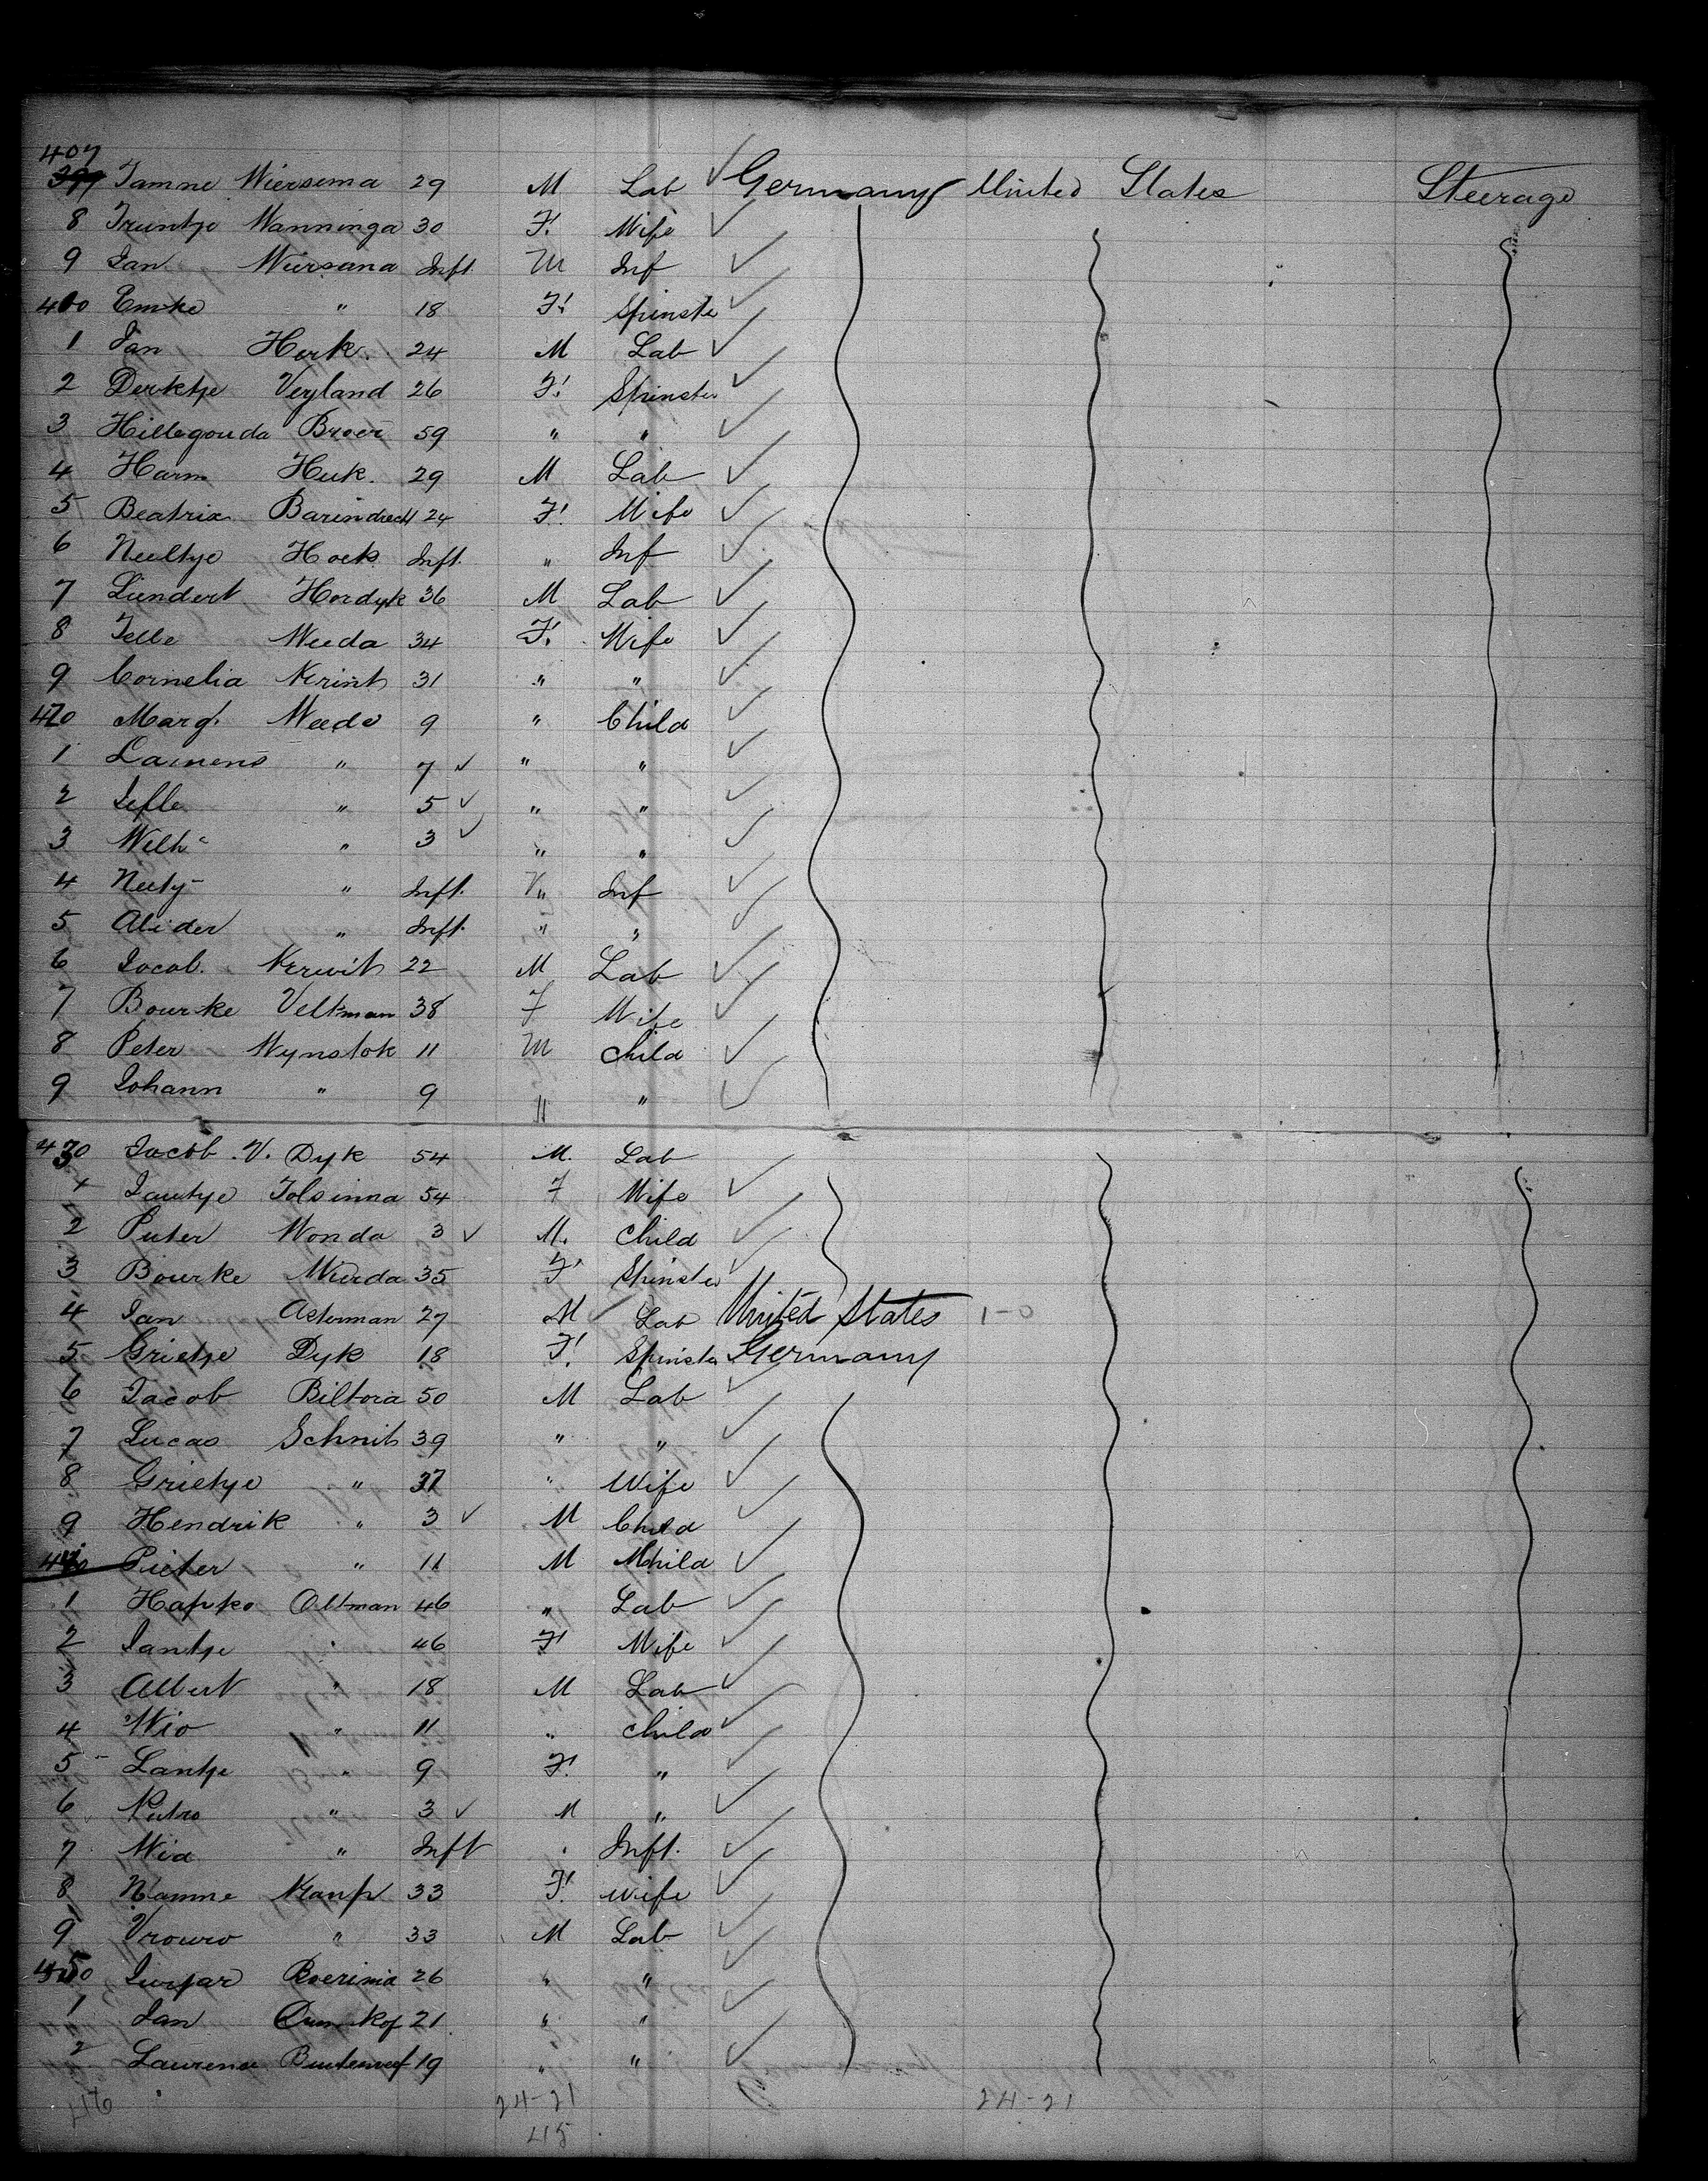 407
397 Tamne Wiersema 29 M Lab ✓ Germany United States Steerage
8 Truntje Wanninga 30 F. Wife ✓
9 Jan Wiersana Inft. M Inf ✓
400 Emke " 18 F. Spinster ✓
1 Jan Herk. 24 M Lab ✓
2 Derktje Veyland 26 F. Spinster ✓
3 Hillegouda Broer 59 " " ✓
4 Harm Huk. 29 M Lab ✓
5 Beatrix Barindrecht 24 F. Wife ✓
6 Neeltje Hoek Inft. " Inf ✓
7 Lendert Hordyk 36 M Lab ✓
8 Jelle Weeda 34 F. Wife ✓
9 Cornelia Krint 31 " " ✓
420 Marg. Weeda 9 " Child ✓
1 Lainens " 7 ✓ " " ✓
2 Jefle " 5 ✓ " " ✓
3 Wilh " 3 ✓ " " ✓
4 Neety " Inft. " Inf ✓
5 Alider " Inft. " " ✓
6 Jacob. Kruit 22 M Lab ✓
7 Bourke Veltman 38 F Wife ✓
8 Peter Wynstok 11 M Child ✓
9 Johann " 9 " " ✓
430 Jacob V. Dyk 54 M. Lab
Jantje Tolsinna 54 F Wife ✓
2 Peter Wonda 3 ✓ M. Child ✓
3 Bourke Wierda 35 F Spinster ✓
4 Jan Acterman 27 M ✓ Lab United States 1-0
5 Grietje Dyk 18 F. Spinster Germany
6 Jacob Biltora 50 M Lab ✓
7 Lucas Schnit 39 " " ✓
8 Grietje " 37 " Wife ✓
9 Hendrik " 3 ✓ M Child ✓
440 Pieter " 11 M Child ✓
1 Happo Oltman 46 " Lab ✓
2 Jantje " 46 F Wife ✓
3 Albert " 18 M Lab ✓
4 Wio " 11 " Child ✓
5 Lantje " 9 F. " ✓
6 Pietro " 3 ✓ M " ✓
7 Wia " Inft " Inft. ✓
8 Namne Kamp 33 F. Wife ✓
9 Vrouwo " 33 M Lab ✓
450 Boerima 26 " " ✓
1 Jan 21 " " ✓
2 Laurence 19 " " ✓
46 24-21 24-21
45